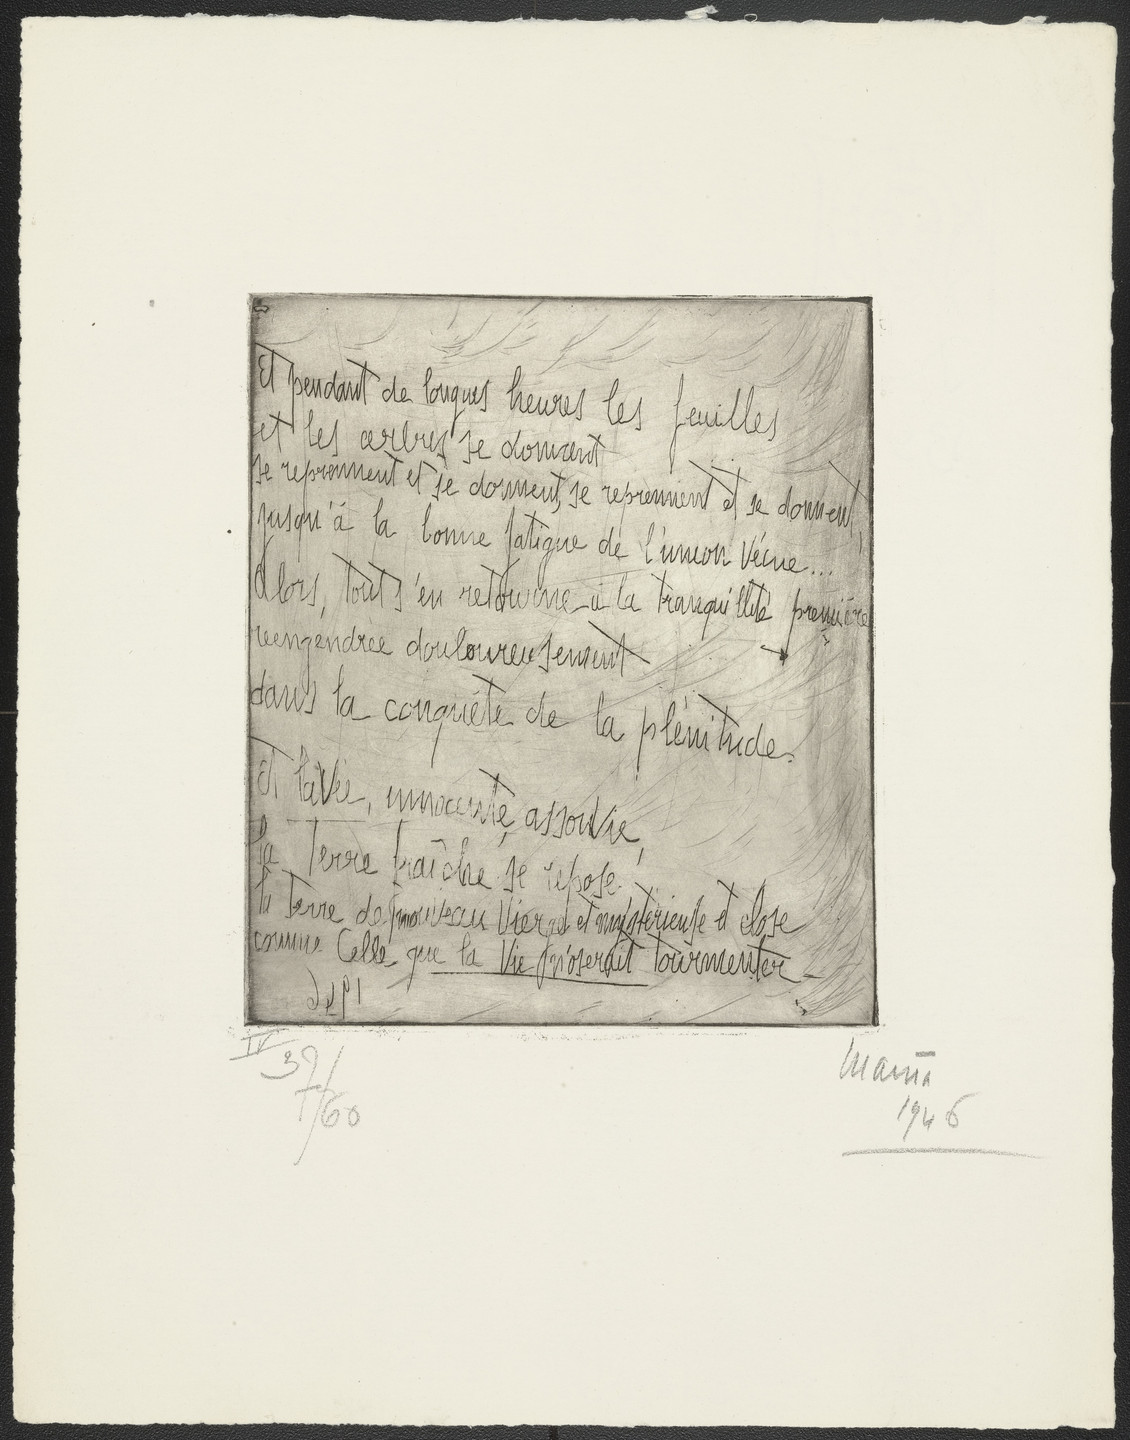 Et pendant de longues heures les feuilles
et les arbres se donnent
se reprennent et se donnent, se reprennent et se donnent,
jusqu'à la bonne fatigue de l'union vécue...
Alors, tout s'en retourne à la tranquillité première
réengendrée douloureusement
dans la conquête de la plénitude.
Et la Vie, innocente, assouvie,
la Terre fraîche se repose.
la Terre de nouveau Vierge et mystérieuse et close
comme Celle que la Vie n'oserait tourmenter
IV 39/60
Maria
1946